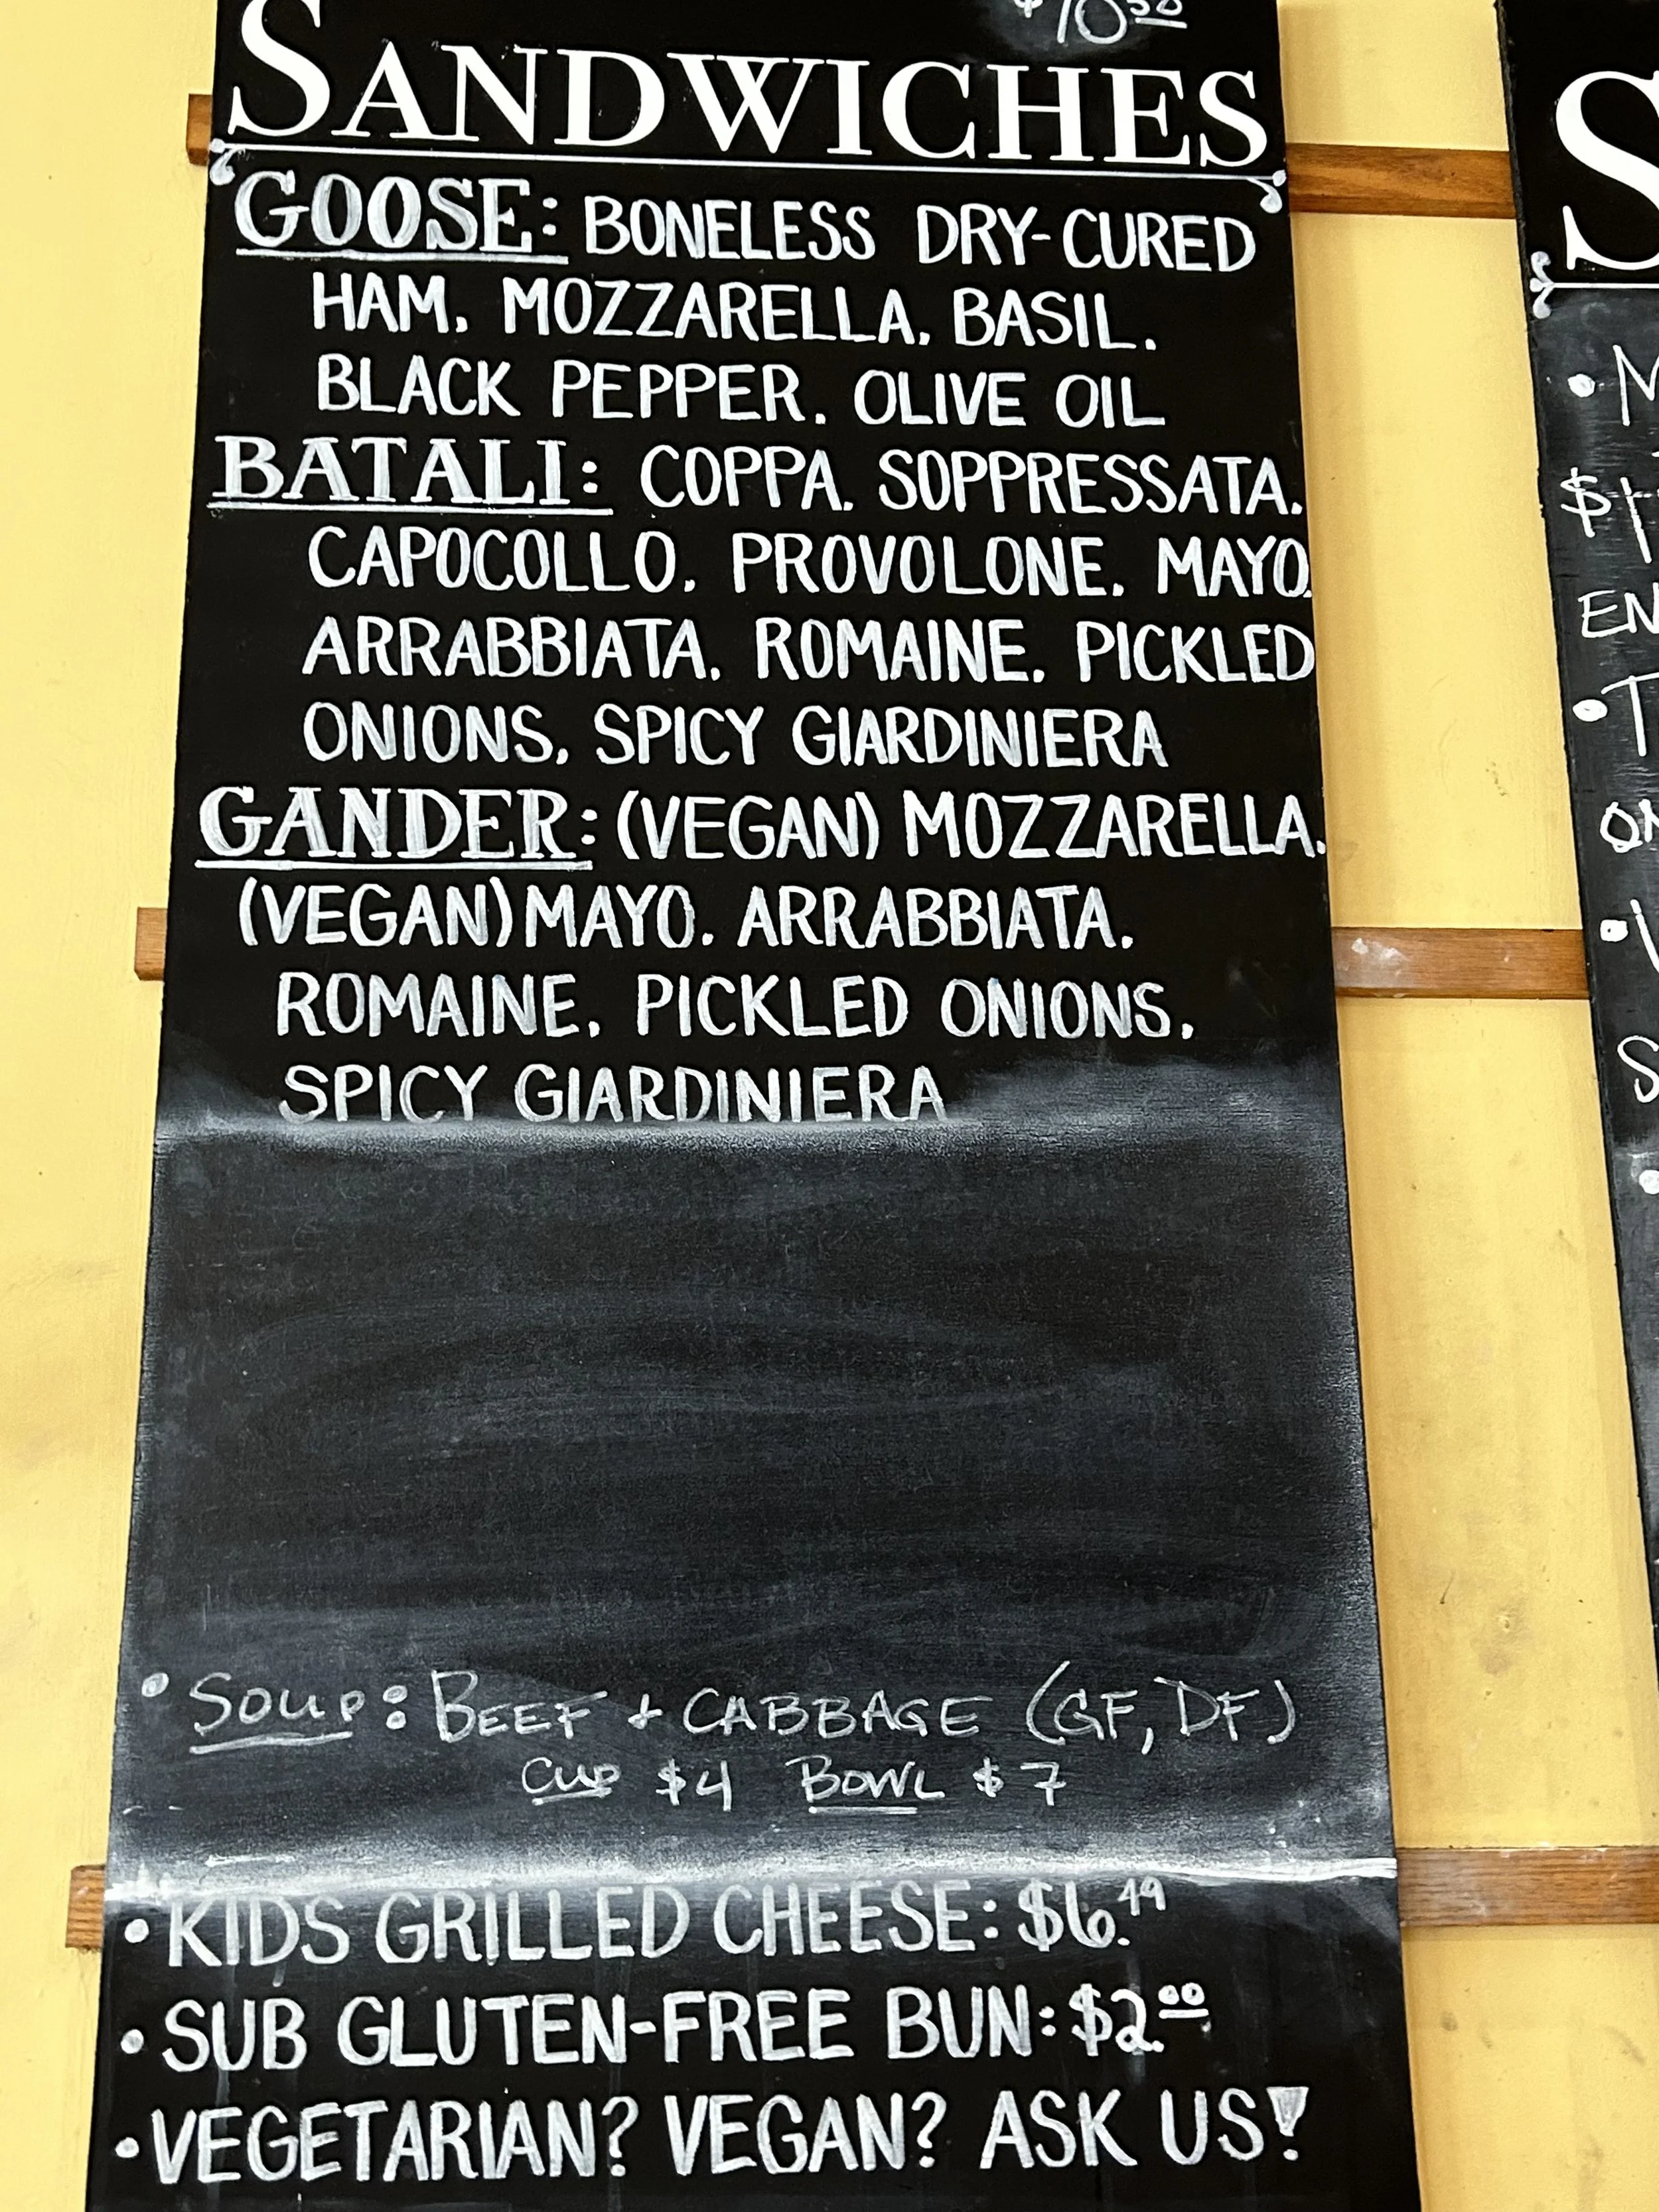 $10.50
SANDWICHES
GOOSE: BONELESS DRY-CURED
HAM, MOZZARELLA, BASIL,
BLACK PEPPER, OLIVE OIL
BATALI: COPPA, SOPPRESSATA,
CAPOCOLLO, PROVOLONE, MAYO,
ARRABBIATA, ROMAINE, PICKLED
ONIONS, SPICY GIARDINIERA
GANDER: (VEGAN) MOZZARELLA,
(VEGAN) MAYO, ARRABBIATA,
ROMAINE, PICKLED ONIONS,
SPICY GIARDINIERA
• SOUP: BEEF + CABBAGE (GF, DF)
CUP $4 BOWL $7
• KIDS GRILLED CHEESE: $6.49
• SUB GLUTEN-FREE BUN: $2.00
• VEGETARIAN? VEGAN? ASK US!